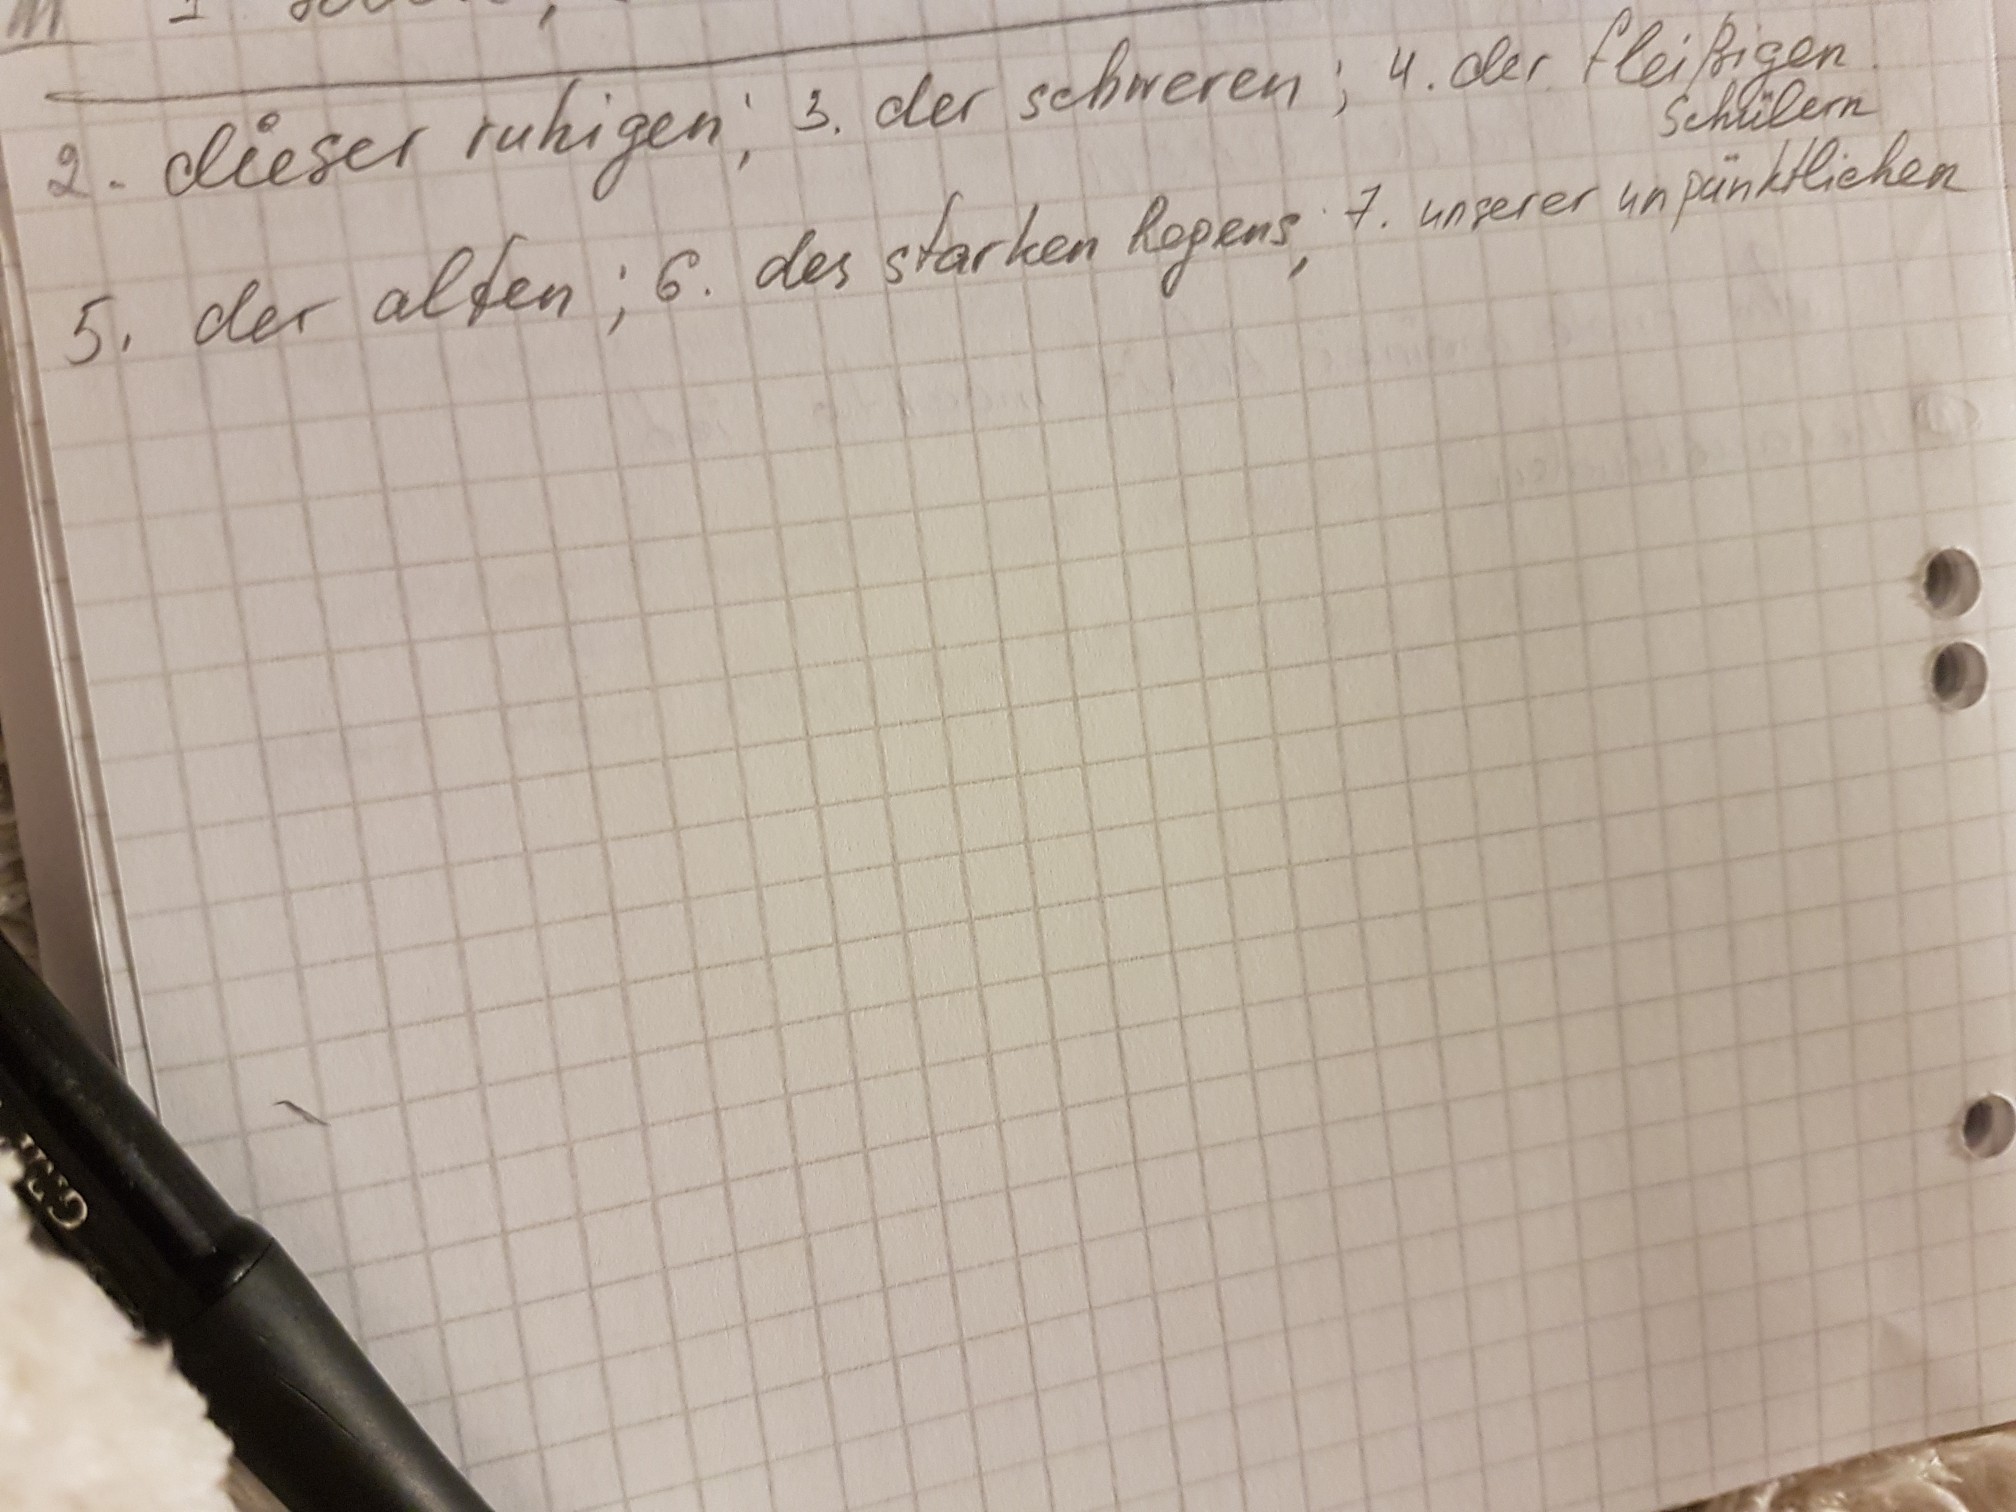 2. dieser ruhigen; 3. der schweren; 4. der fleißigen
Schülern
5. der alten; 6. des starken Regens; 7. unserer unpünktlichen